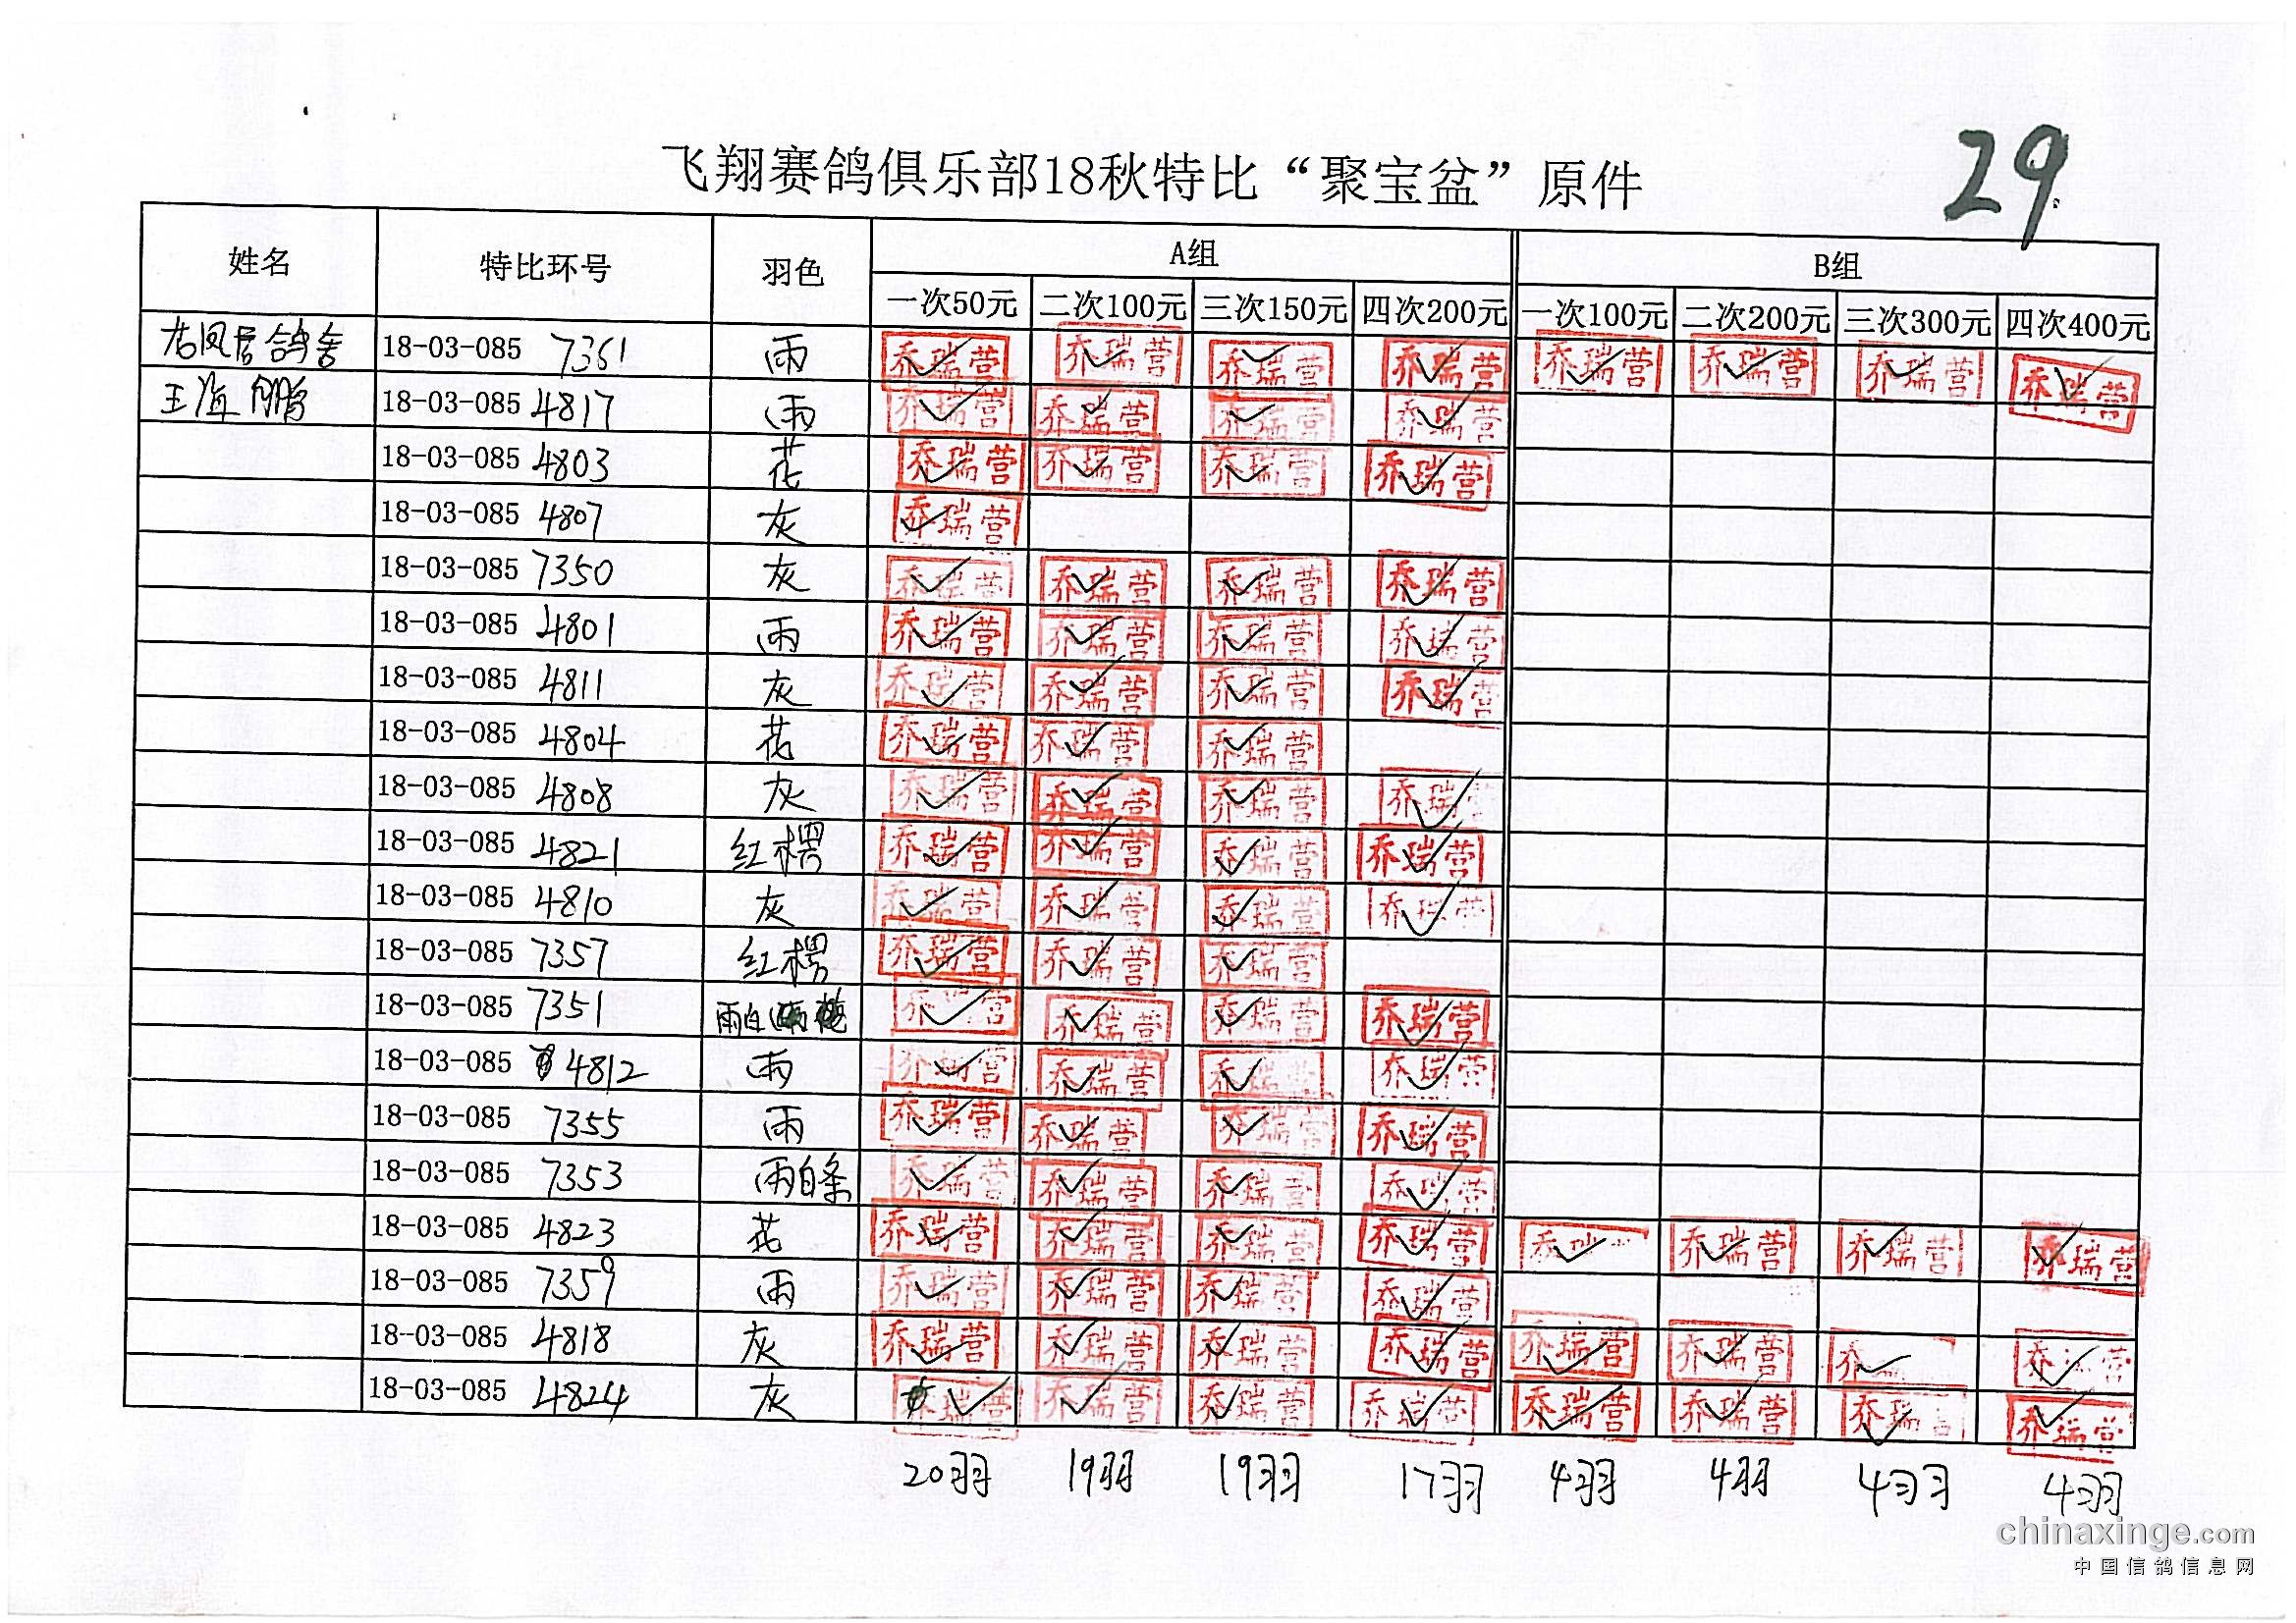 29
飞翔赛鸽俱乐部18秋特比“聚宝盆”原件
姓名 特比环号 羽色 A组 B组
一次50元 二次100元 三次150元 四次200元 一次100元 二次200元 三次300元 四次400元
凤居鸽舍 18-03-085 7361 雨 乔瑞营 乔瑞营 乔瑞营 乔瑞营 乔瑞营 乔瑞营 乔瑞营 乔瑞营
王海鹏 18-03-085 4817 雨 乔瑞营 乔瑞营 乔瑞营 乔瑞营
18-03-085 4803 花 乔瑞营 乔瑞营 乔瑞营 乔瑞营
18-03-085 4807 灰 乔瑞营
18-03-085 7350 灰 乔瑞营 乔瑞营 乔瑞营 乔瑞营
18-03-085 4801 雨 乔瑞营 乔瑞营 乔瑞营 乔瑞营
18-03-085 4811 灰 乔瑞营 乔瑞营 乔瑞营 乔瑞营
18-03-085 4804 花 乔瑞营 乔瑞营 乔瑞营
18-03-085 4808 灰 乔瑞营 乔瑞营 乔瑞营 乔瑞
18-03-085 4821 红楞 乔瑞营 乔瑞营 乔瑞营 乔瑞营
18-03-085 4810 灰 乔瑞营 乔瑞营 乔瑞营 乔瑞营
18-03-085 7357 红楞 乔瑞营 乔瑞营 乔瑞营
18-03-085 7351 雨白 乔瑞营 乔瑞营 乔瑞营 乔瑞营
18-03-085 4812 雨 乔瑞营 乔瑞营 乔瑞营 乔瑞营
18-03-085 7355 雨 乔瑞营 乔瑞营 乔瑞营 乔瑞营
18-03-085 7353 雨白条 乔瑞营 乔瑞营 乔瑞营 乔瑞营
18-03-085 4823 花 乔瑞营 乔瑞营 乔瑞营 乔瑞营 乔瑞 乔瑞营 乔瑞营 乔瑞营
18-03-085 7359 雨 乔瑞营 乔瑞营 乔瑞营 乔瑞营
18-03-085 4818 灰 乔瑞营 乔瑞营 乔瑞营 乔瑞营 乔瑞营 乔瑞营 乔 乔瑞营
18-03-085 4824 灰 乔瑞营 乔瑞营 乔瑞营 乔瑞营 乔瑞营 乔瑞营 乔瑞营 乔瑞营
20羽 19羽 19羽 17羽 4羽 4羽 4羽 4羽
chinaxinge.com
中国信鸽信息网